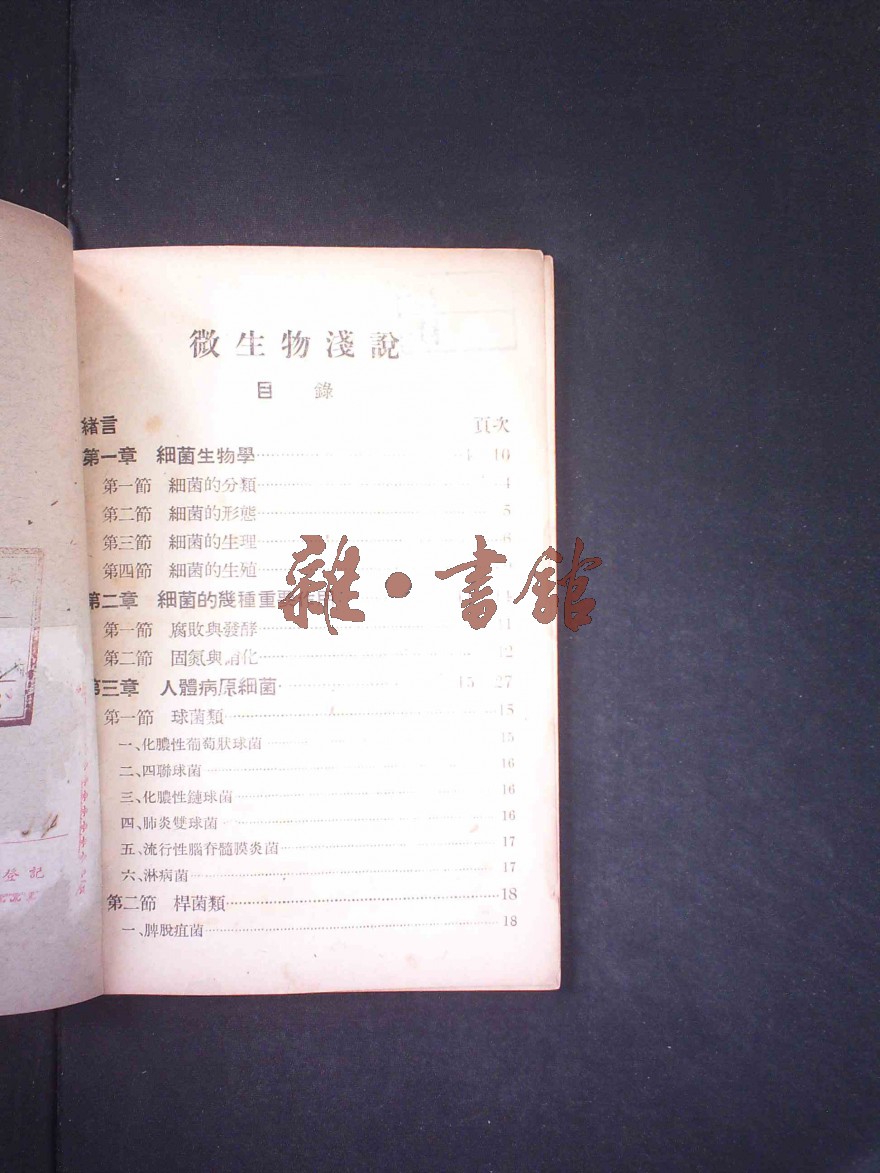 微生物淺說
目 錄
緒言 頁次
第一章 細菌生物學 10
第一節 細菌的分類 4
第二節 細菌的形態 5
第三節 細菌的生理 6
第四節 細菌的生殖
第二章 細菌的幾種重要作用
第一節 腐敗與發酵 11
第二節 固氮與硝化 12
第三章 人體病原細菌 15 27
第一節 球菌類 15
一、化膿性葡萄狀球菌 15
二、四聯球菌 16
三、化膿性鏈球菌 16
四、肺炎雙球菌 16
五、流行性腦脊髓膜炎菌 17
六、淋病菌 17
第二節 桿菌類 18
一、脾脫疽菌 18
雜·書館
登記